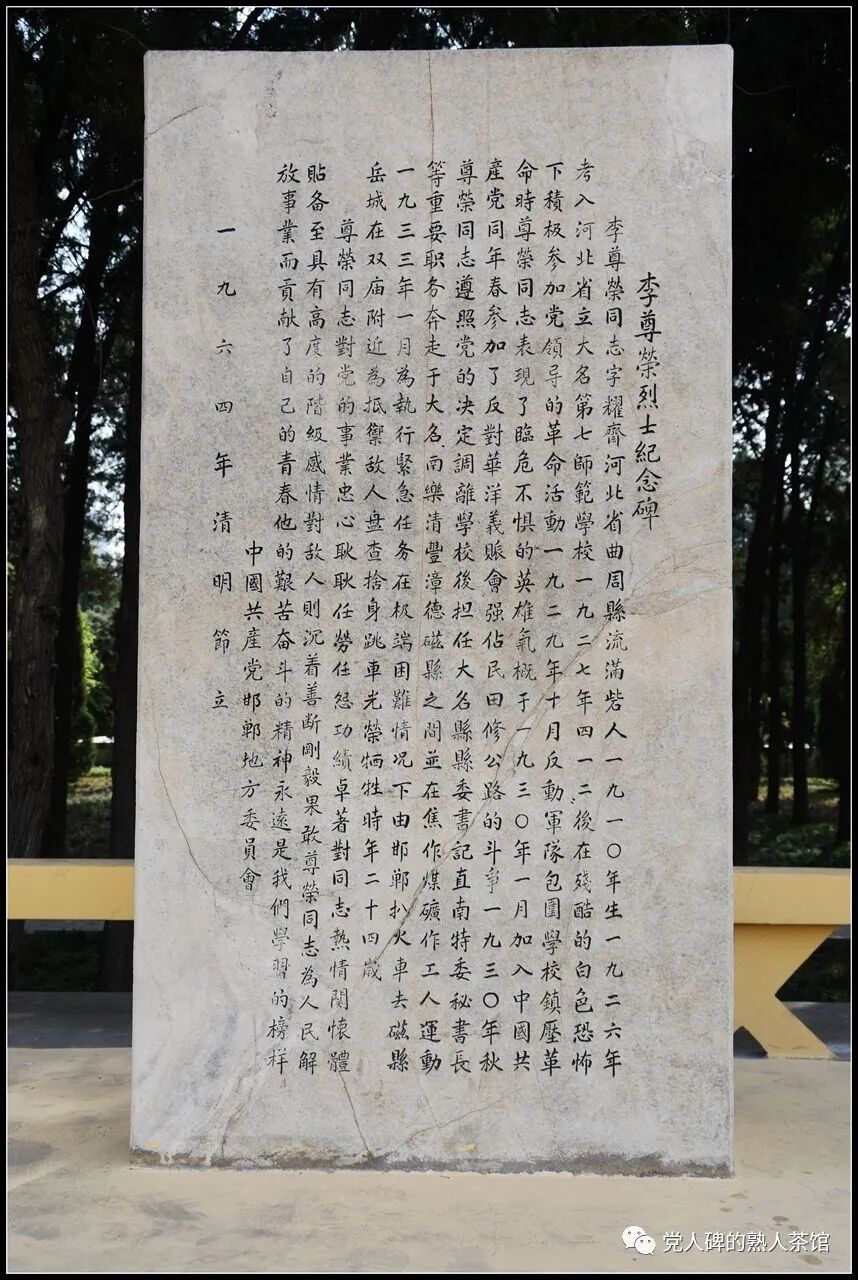 李尊榮烈士紀念碑
李尊榮同志字耀齋河北省曲周縣流滿砦人一九一〇年生一九二六年
考入河北省立大名第七師範學校一九二七年四一二後在殘酷的白色恐怖
下積极參加党領导的革命活動一九二九年十月反動軍隊包圍學校鎮壓革
命時尊榮同志表現了臨危不惧的英雄氣概于一九三〇年一月加入中國共
産党同年春參加了反對華洋義賑會强佔民田修公路的斗爭一九三〇年秋
尊榮同志遵照党的决定調離學校後担任大名縣縣委書記直南特委秘書長
等重要职务奔走于大名南樂清豐漳德磁縣之間並在焦作煤礦作工人運動
一九三三年一月為執行緊急任务在极端困難情况下由邯鄲扒火車去磁縣
岳城在双庙附近為抵禦敌人盘查捨身跳車光榮牺牲時年二十四歲
尊榮同志對党的事業忠心耿耿任勞任怨功績卓著對同志熱情関懷體
貼备至具有高度的階級感情對敌人則沉着善断剛毅果敢尊榮同志為人民解
放事業而貢献了自己的青春他的艱苦奋斗的精神永遠是我們學習的榜样
中國共産党邯鄲地方委員會
一九六四年清明節立
党人碑的熟人茶馆